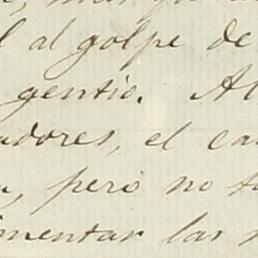 l al golpe de
gentío. Al
adores, el ca
pero no t
mentar las